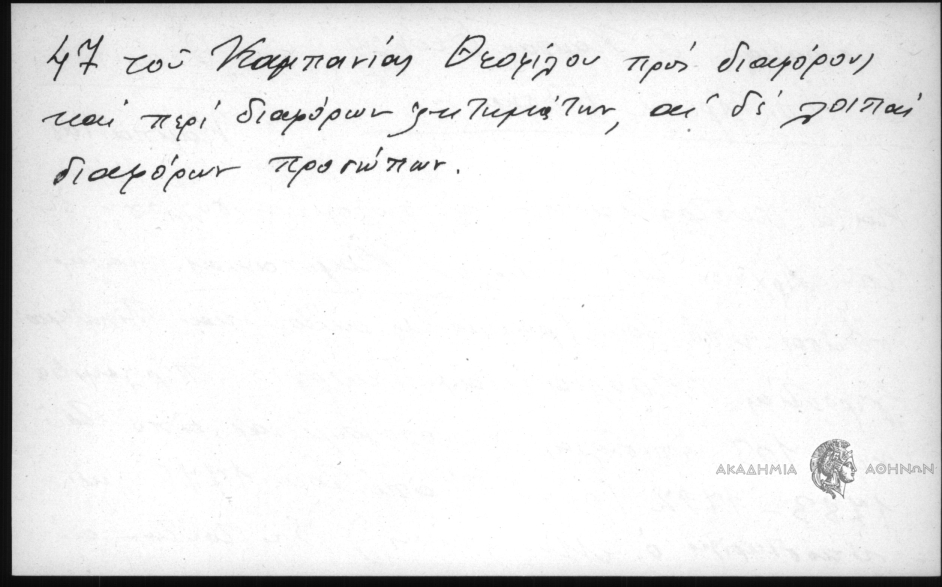 47 τοῦ Καμπανίας Θεοφίλου πρός διαφόρους
καί περί διαφόρων ζητημάτων, αἱ δέ λοιπαί
διαφόρων προσώπων.
ΑΚΑΔΗΜΙΑ ΑΘΗΝΩΝ